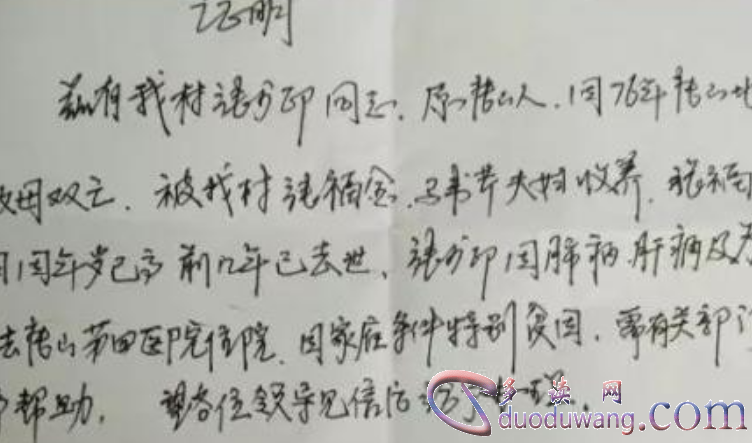 证明
兹有我村张少印同志,原唐山人,因76年唐山地
父母双亡,被我村张福金、马书芹夫妇收养,张福
因年岁已高前几年已去世,张少印因肺病、肝病及
去唐山第四医院住院,因家庭条件特别贫困,需有关部门
帮助,望各位领导见信后给予办理。
多读网
duoduwang.com